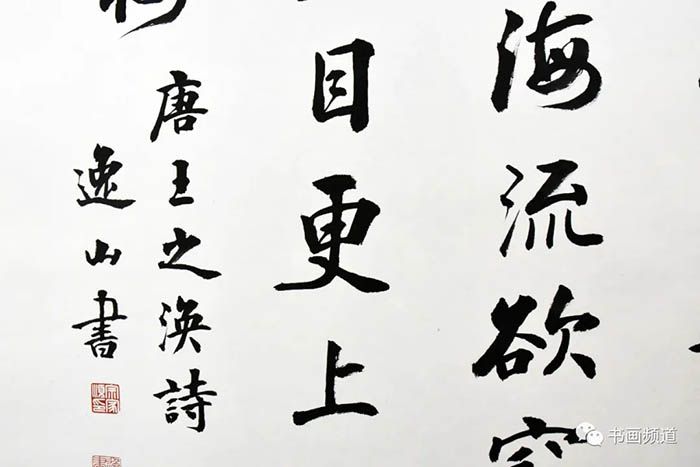 海流欲窮
目更上
唐王之渙詩
逸山書
书画频道